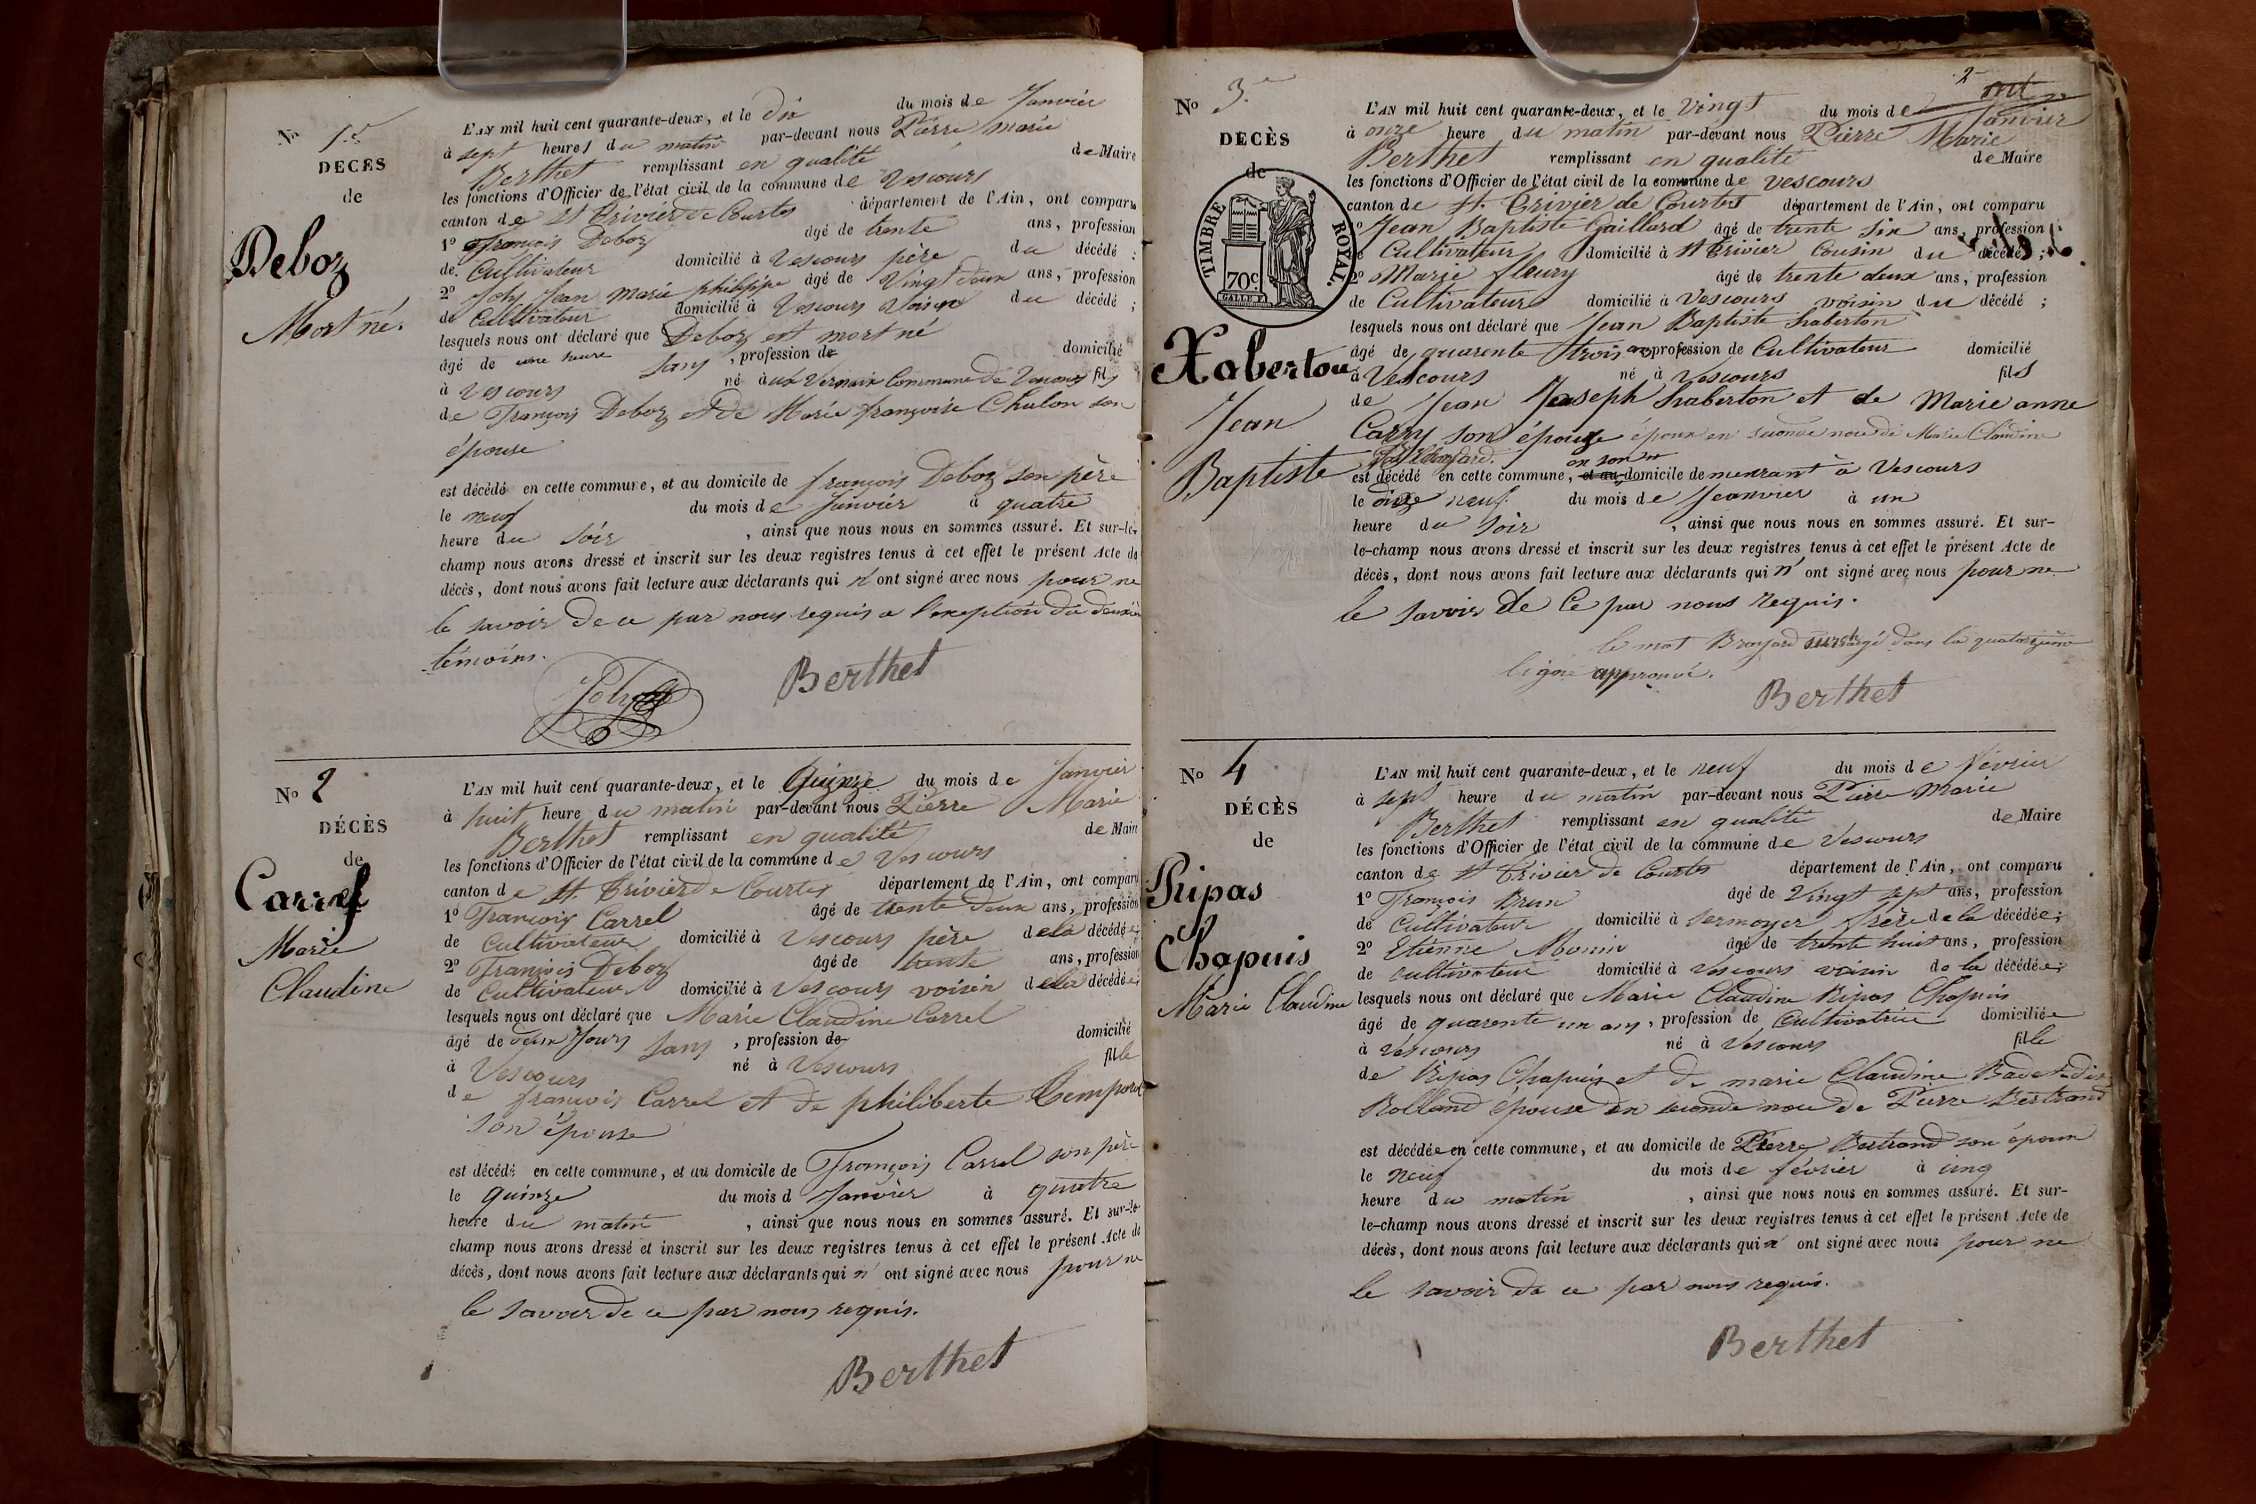 No 1er
DECES
de
Deboz
Mort né.
L'AN mil huit cent quarante-deux, et le dix du mois de Janvier
à sept heures du matin par-devant nous Pierre Marie
Berthet remplissant en qualité de Maire
les fonctions d'Officier de l'état civil de la commune de Vescours
canton de St Trivier de Courtes département de l'Ain, ont comparu
1o François Deboz âgé de trente ans, profession
de Cultivateur domicilié à Vescours père du décédé ;
2o Joly Jean Marie philippe âgé de Vingt deux ans, profession
de Cultivateur domicilié à Vescours Voisin du décédé ;
lesquels nous ont déclaré que Deboz est mort né
âgé de une heure sans, profession de domicilié
à Vescours né à aux Vernais Commune de Vescours fils
de François Deboz et de Marie françoise Chulon son
épouse
est décédé en cette commune, et au domicile de françois Deboz son père
le neuf du mois de Janvier à quatre
heure du soir, ainsi que nous nous en sommes assuré. Et sur-le-
champ nous avons dressé et inscrit sur les deux registres tenus à cet effet le présent Acte de
décès, dont nous avons fait lecture aux déclarants qui n'ont signé avec nous pour ne
le savoir de ce par nous requis a l'exeption du deuxième
témoins.
Joly
Berthet
No 2
DÉCÈS
de
Carrel
Marie
Claudine
L'AN mil huit cent quarante-deux, et le Quinze du mois de Janvier
à huit heure du matin par-devant nous Pierre Marie
Berthet remplissant en qualité de Maire
les fonctions d'Officier de l'état civil de la commune de Vescours
canton de St. Trivier de Courtes département de l'Ain, ont comparu
1o François Carrel âgé de trente deux ans, profession
de Cultivateur domicilié à Vescours père de la décédée ;
2o François Deboz âgé de trente ans, profession
de Cultivateur domicilié à Vescours voisin de la décédée ;
lesquels nous ont déclaré que Marie Claudine Carrel
âgé de deux Jours sans, profession de domicilié
à Vescours né à Vescours fille
de françois Carrel et de philiberte Temporal
son épouse
est décédé en cette commune, et au domicile de François Carrel son père
le quinze du mois d Janvier à quatre
heure du matin, ainsi que nous nous en sommes assuré. Et sur-le-
champ nous avons dressé et inscrit sur les deux registres tenus à cet effet le présent Acte de
décès, dont nous avons fait lecture aux déclarants qui n'ont signé avec nous pour ne
le savoir de ce par nous requis.
Berthet
2
No 3e
DECÈS
de
TIMBRE ROYAL.
70c
Xaberton
Jean
Baptiste
L'AN mil huit cent quarante-deux, et le Vingt du mois de Janvier
à onze heure du matin par-devant nous Pierre Marie
Berthet remplissant en qualité de Maire
les fonctions d'Officier de l'état civil de la commune de Vescours
canton de St. Trivier de Courtes département de l'Ain, ont comparu
1o Jean Baptiste Gaillard âgé de trente six ans, profession
de Cultivateur domicilié à St Trivier Cousin du décédé ;
2o Marie fleury âgé de trente deux ans, profession
de Cultivateur domicilié à Vescours voisin du décédé ;
lesquels nous ont déclaré que Jean Baptiste haberton
âgé de quarente trois ans profession de Cultivateur domicilié
à Vescours né à Vescours fils
de Jean Joseph haberton et de Marie anne
Carry son épouze époux en seconde noce de Marie Claudine
Broyard.
est décédé en cette commune, et au en son domicile de menrant à Vescours
le dixe neuf du mois de Jeanvier à un
heure du soir, ainsi que nous nous en sommes assuré. Et sur-
le-champ nous avons dressé et inscrit sur les deux registres tenus à cet effet le présent Acte de
décès, dont nous avons fait lecture aux déclarants qui n'ont signé avec nous pour ne
le savoir de ce par nous requis.
le mot Broyard surchargé dans la quatorzième
ligne approuvé.
Berthet
No 4
DÉCÈS
de
Ripas
Chapuis
Marie Claudine
L'AN mil huit cent quarante-deux, et le neuf du mois de février
à sept heure du matin par-devant nous Pierre Marie
Berthet remplissant en qualité de Maire
les fonctions d'Officier de l'état civil de la commune de Vescours
canton de St Trivier de Courtes département de l'Ain, ont comparu
1o François Brun âgé de Vingt sept ans, profession
de Cultivateur domicilié à Sermoyer frère de la décédée ;
2o Etienne Monin âgé de trente huit ans, profession
de cultivateur domicilié à Vescours voisin de la décédée ;
lesquels nous ont déclaré que Marie Claudine Ripas Chapuis
âgé de quarente un ans, profession de Cultivatrice domiciliée
à Vescours né à Vescours fille
de Ripas Chapuis et de marie Claudine
Rolland épouse en seconde noce de Pierre Bertrand
est décédée en cette commune, et au domicile de Pierre Bertrand son époux
le neuf du mois de février à cinq
heure du matin, ainsi que nous nous en sommes assuré. Et sur-
le-champ nous avons dressé et inscrit sur les deux registres tenus à cet effet le présent Acte de
décès, dont nous avons fait lecture aux déclarants qui n'ont signé avec nous pour ne
le savoir de ce par nous requis.
Berthet